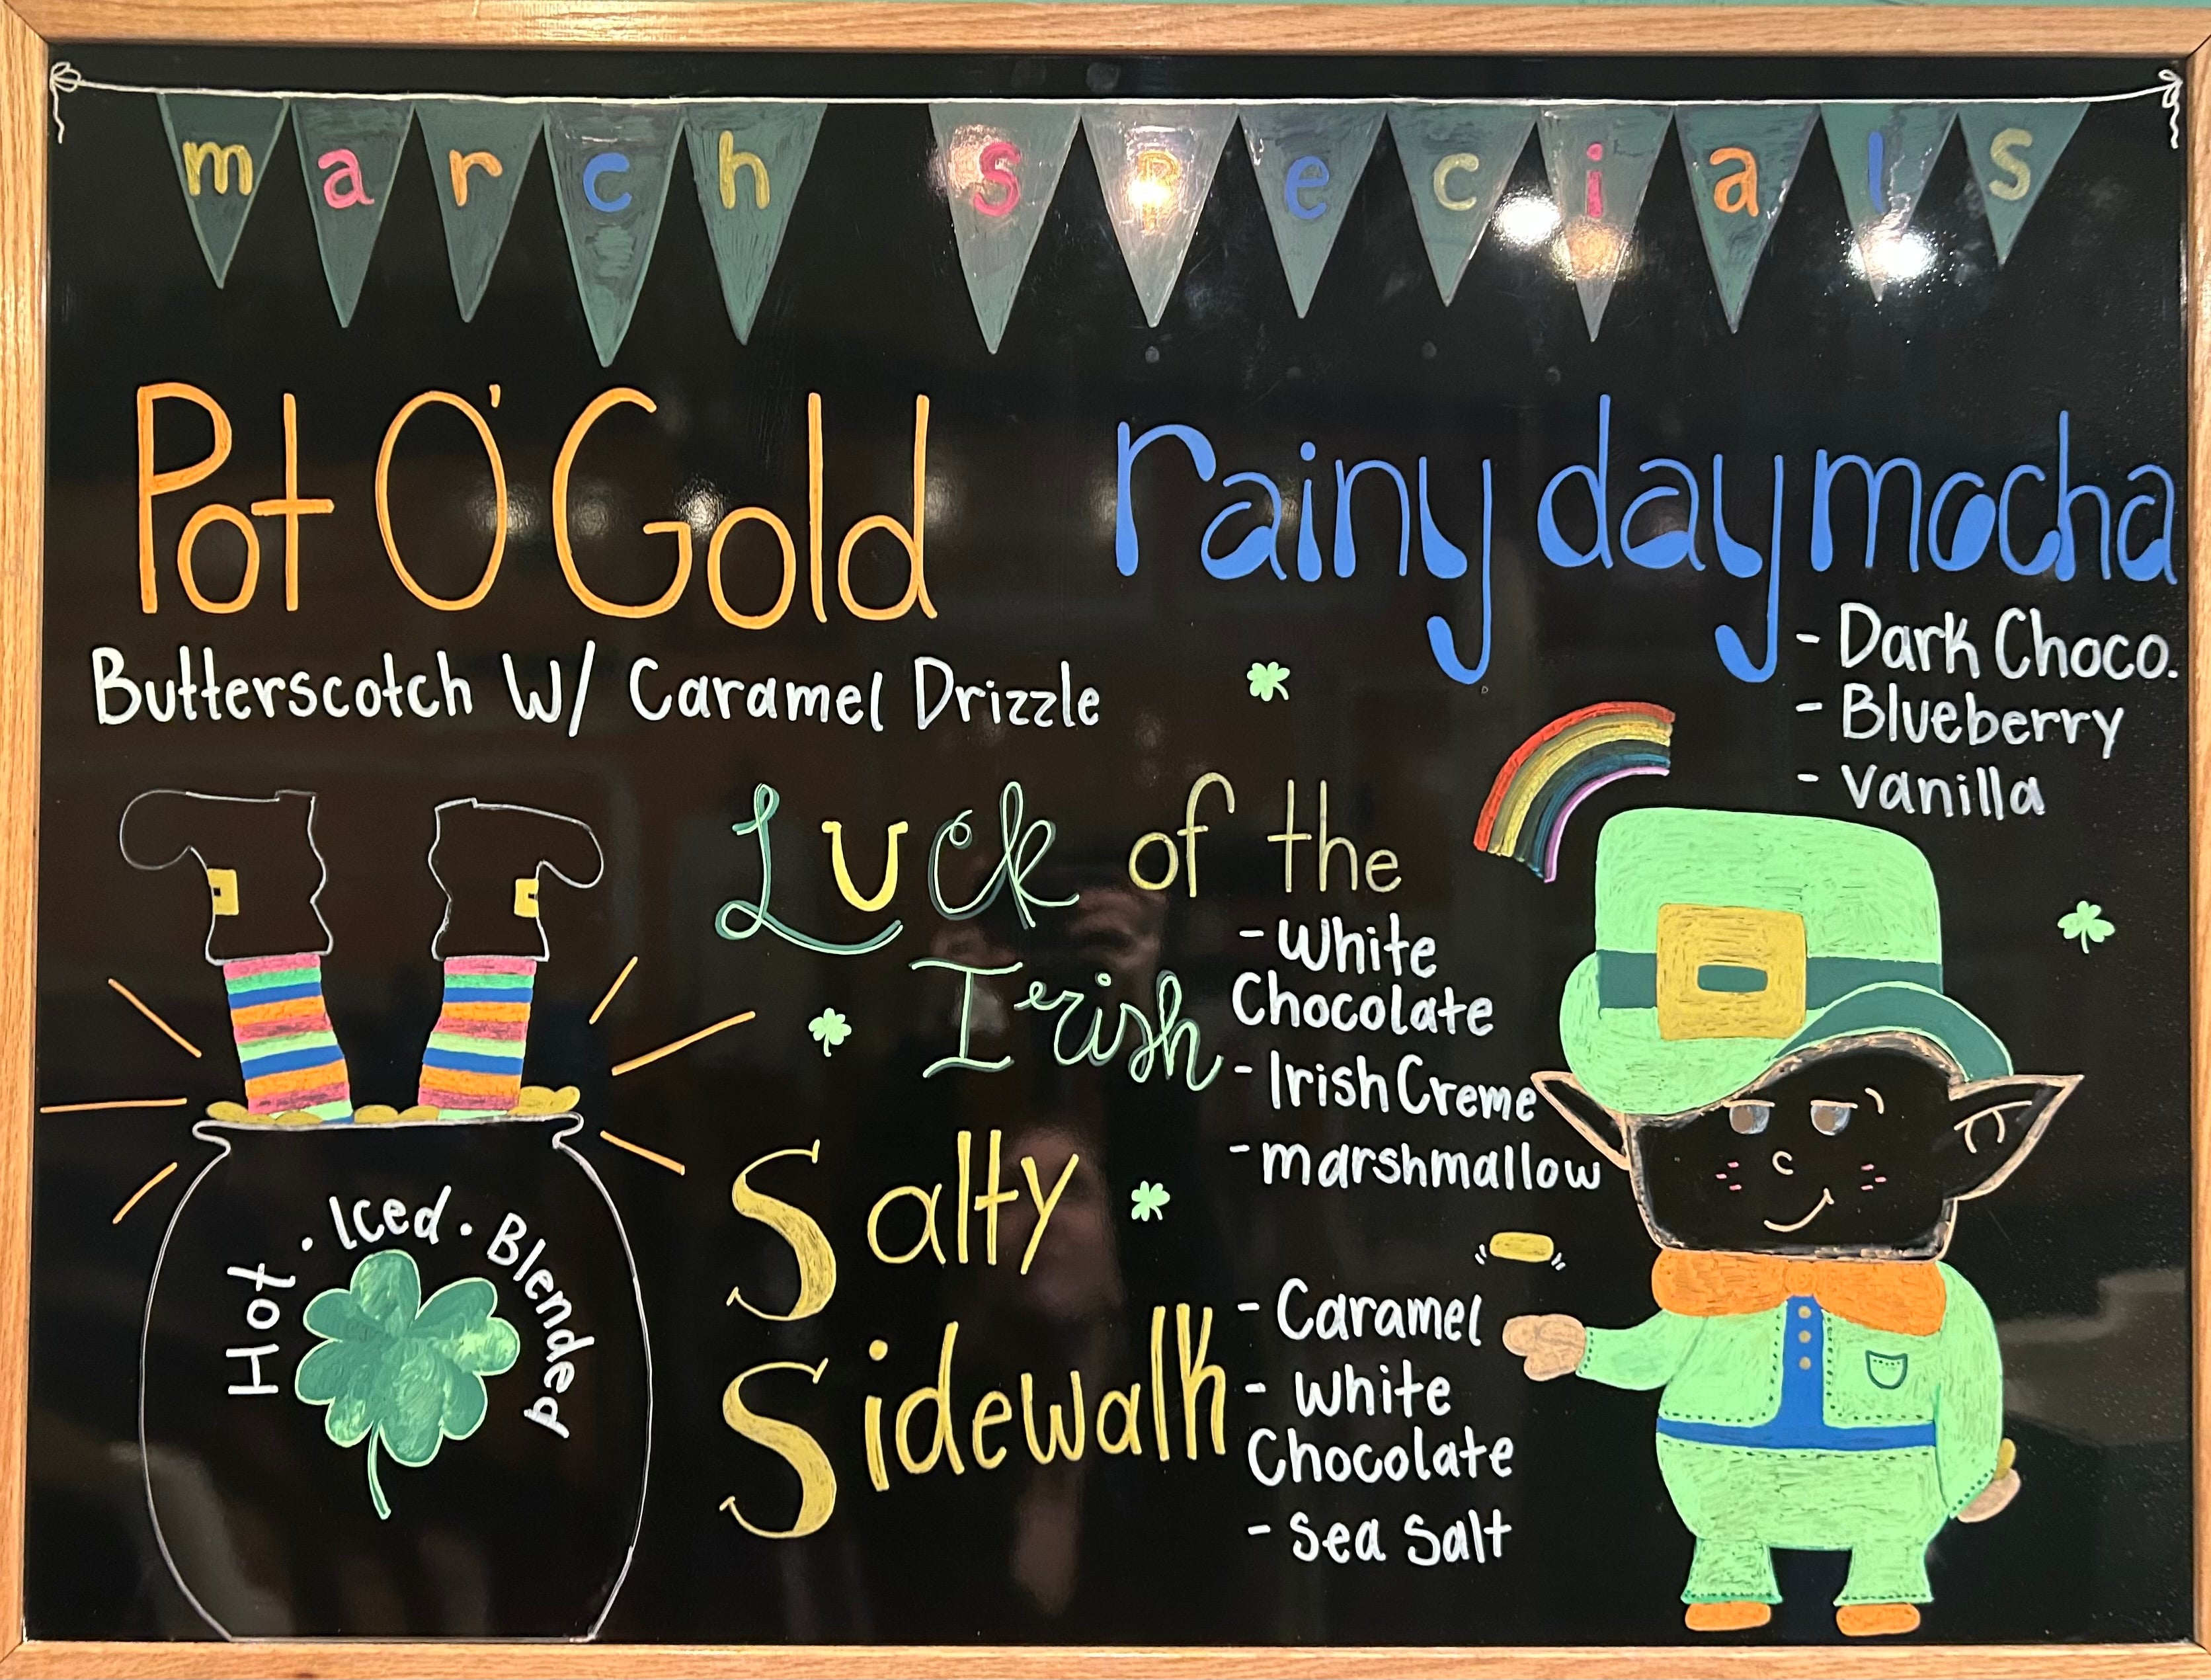 march specials
Pot O' Gold
Butterscotch W/ Caramel Drizzle
rainy day mocha
- Dark Choco.
- Blueberry
- vanilla
Luck of the
Irish
- White
Chocolate
- Irish Creme
- marshmallow
Salty
Sidewalk
- Caramel
- White
Chocolate
- Sea Salt
Hot · Iced · Blended